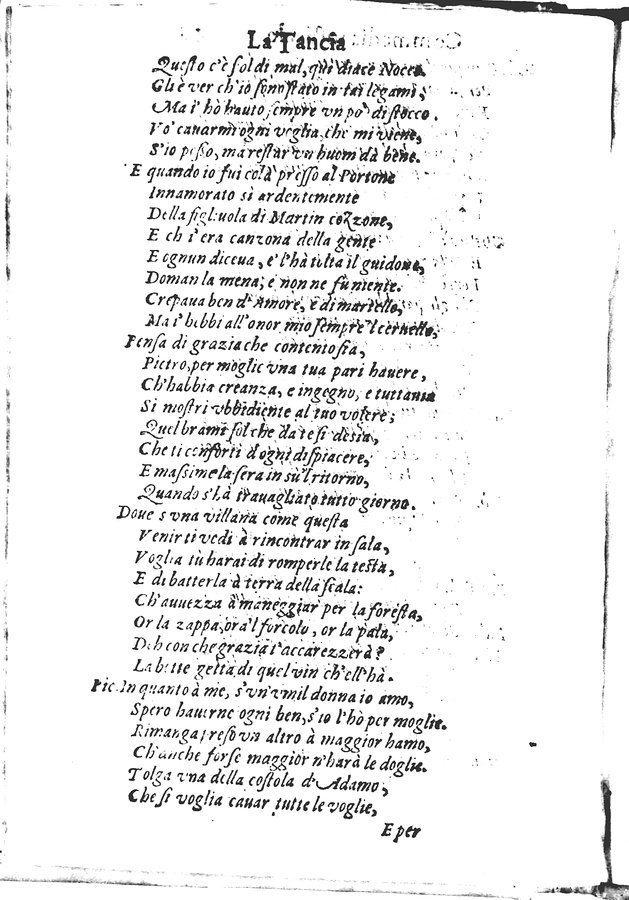 La Tancia
Questo c'è sol di mal, qui diace Nocco.
Gli è ver ch'io sono stato in tai legami;
Ma i' hò hauto sempre vn pò di stocco.
Vò cauarmi ogni voglia, che mi viene,
S'io posso, ma restar vn huom dà bene.
E quando io fui colà presso al Portone
Innamorato sì ardentemente
Della figliuola di Martin coZzone,
E ch i'era canzona della gente
E ognun diceua, e' l'hà tolta il guidone,
Doman la mena; e non ne fù niente.
Crepaua ben d'Amore, e di martello,
Ma i' hebbi all'onor mio sempre 'l ceruello,
Pensa di grazia che contento sia,
Pietro, per moglie vna tua pari hauere,
Ch'habbia creanza, e ingegno, e tuttauia
Si mostri vbbidiente al tuo volere;
Quel brami sol che da te si desia,
Che ti conforti d'ogni dispiacere,
E massime la sera in sù'l ritorno,
Quando s'hà trauagliato tutto giorno.
Doue s'vna villana come questa
Venir ti vedi à rincontrar in sala,
Voglia tù harai di romperle la testa,
E di batterla à terra della scala:
Ch'auuezza à maneggiar per la foresta,
Or la zappa, ora'l forcolo, or la pala,
Deh con che grazia t'accarezzerà?
La botte getta di quel vin ch'ell'hà.
Pie. In quanto à me, s'vn'vmil donna io amo,
Spero hauerne ogni ben, s'io l'hò per moglie.
Rimanga preso vn altro à maggior hamo,
Ch'anche forse maggior n'harà le doglie.
Tolga vna della costola d'Adamo,
Che si voglia cauar tutte le voglie,
E per